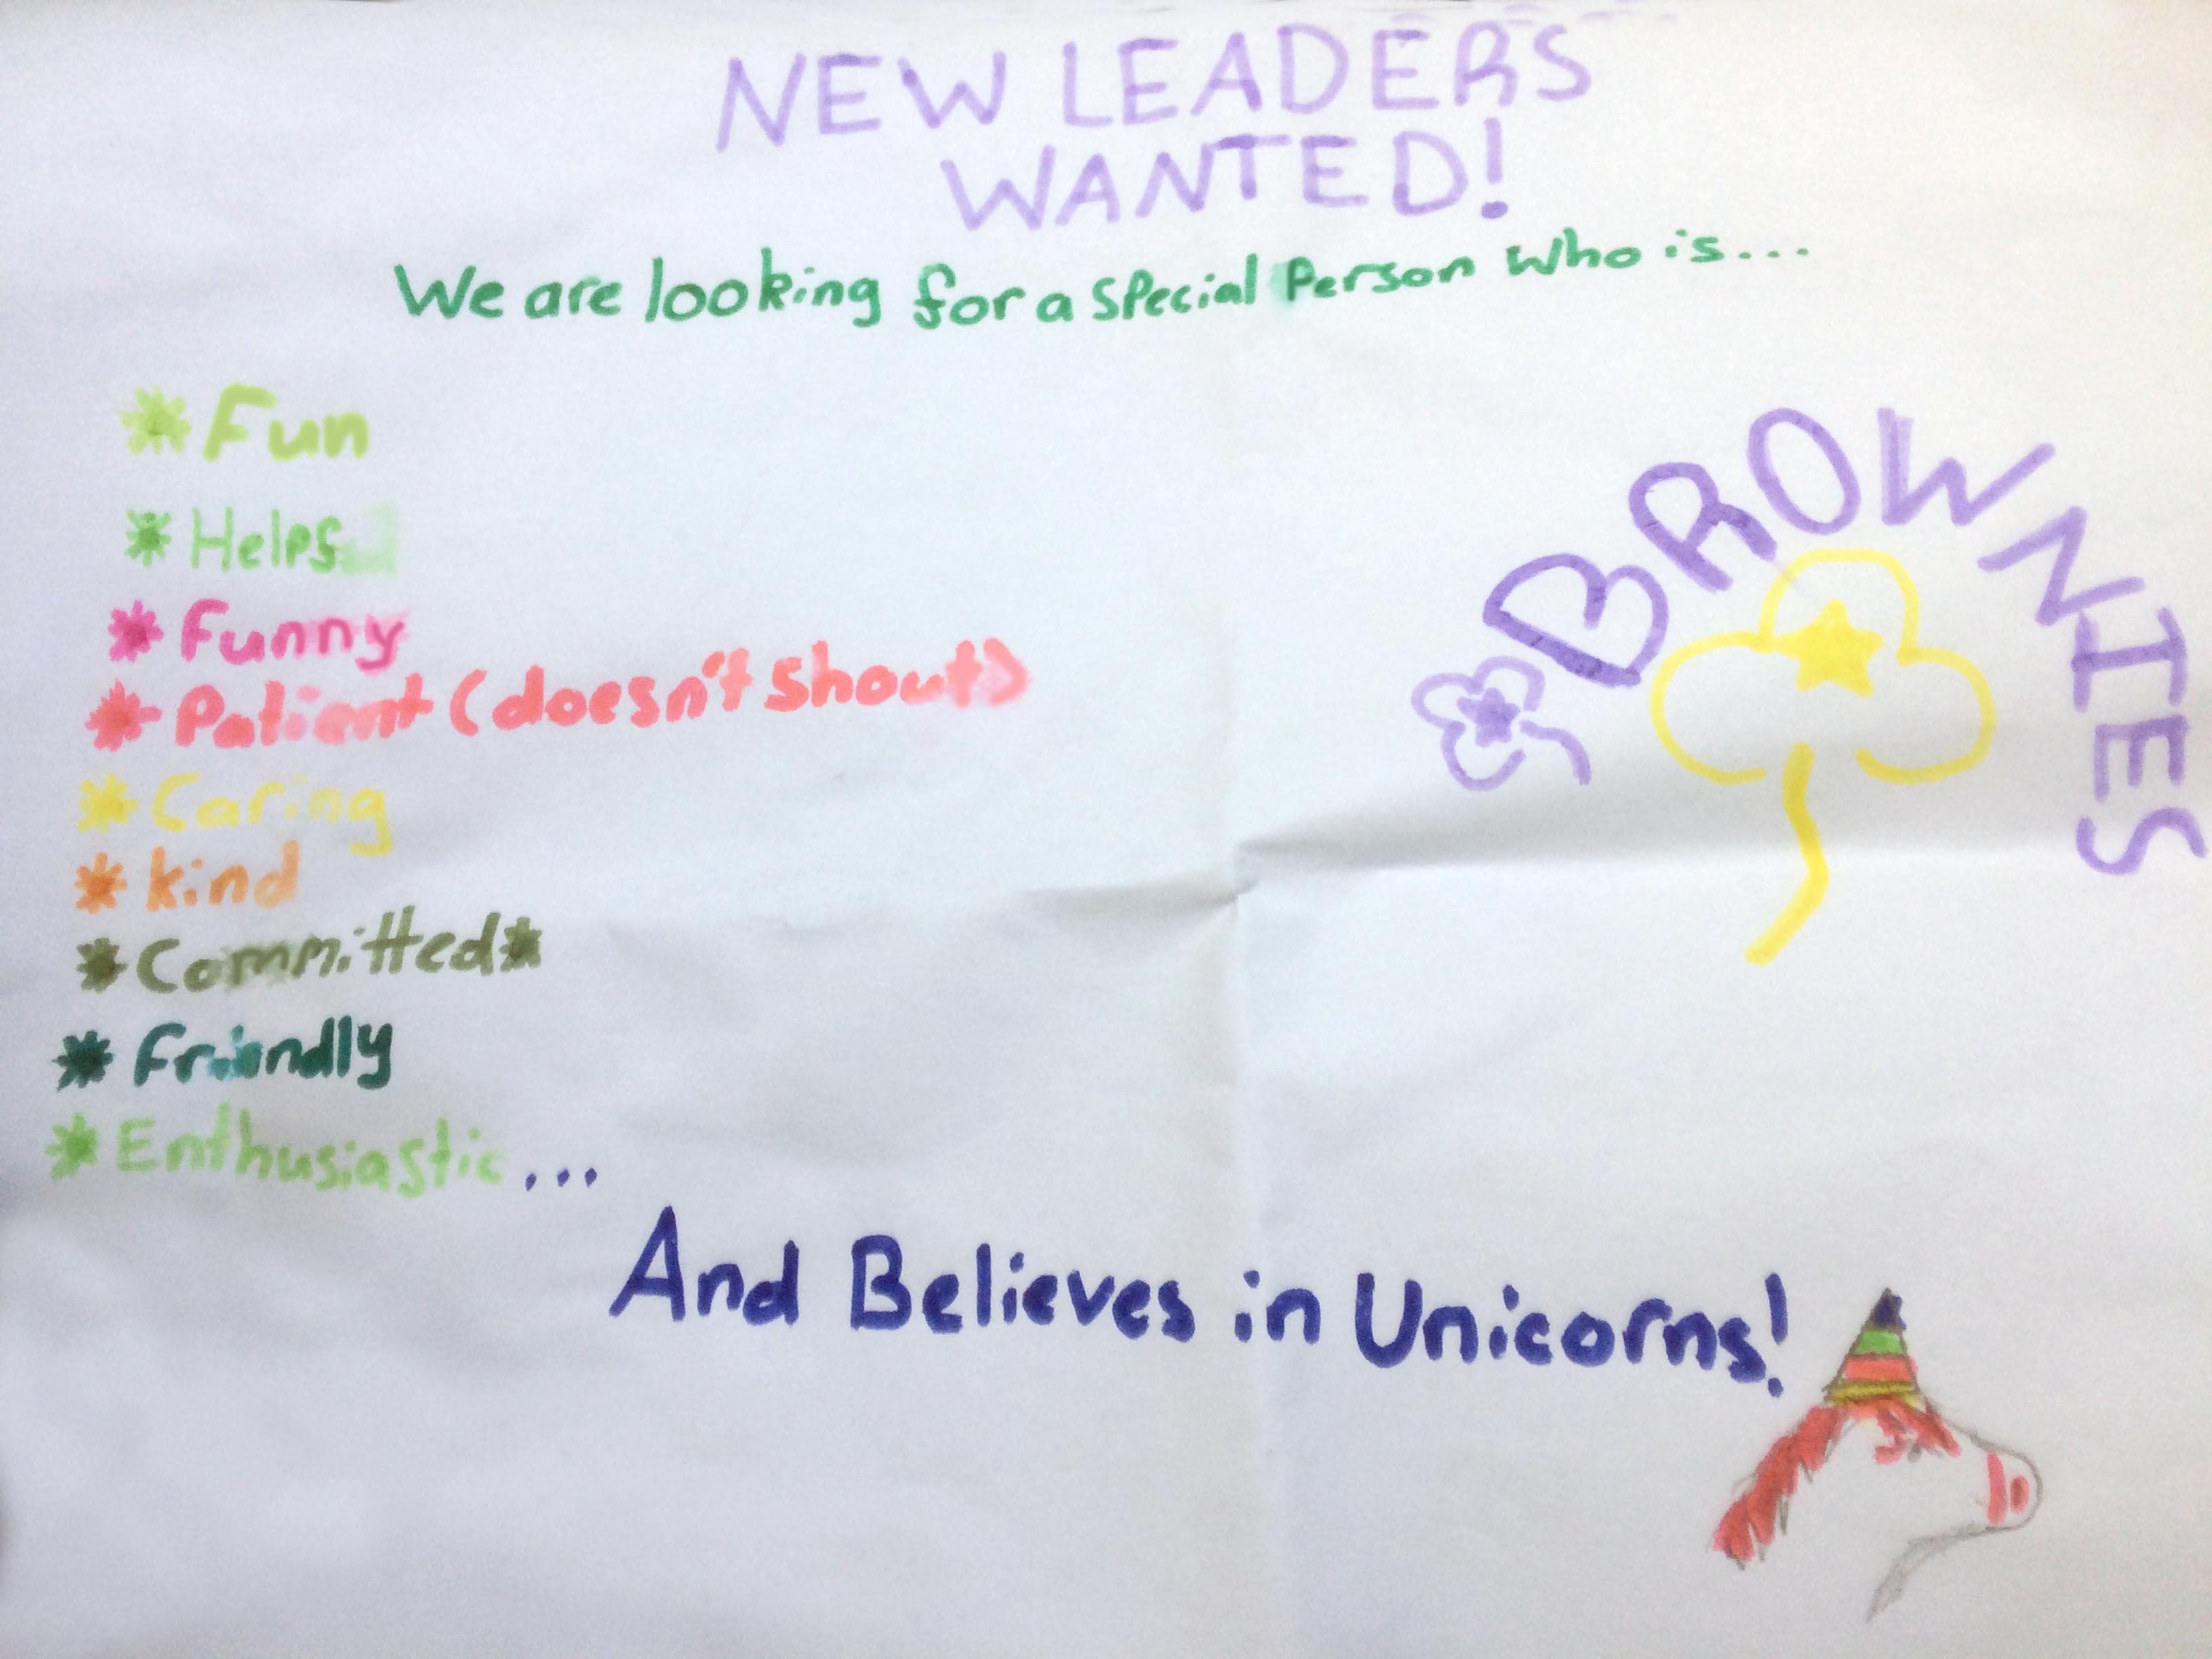 NEW LEADERS
WANTED!
We are looking for a special Person who is...
* Fun
* Helps
* Funny
* Patient (doesn't shout)
* Caring
* kind
* Committed*
* Friendly
* Enthusiastic...
And Believes in Unicorns!
BROWNIES